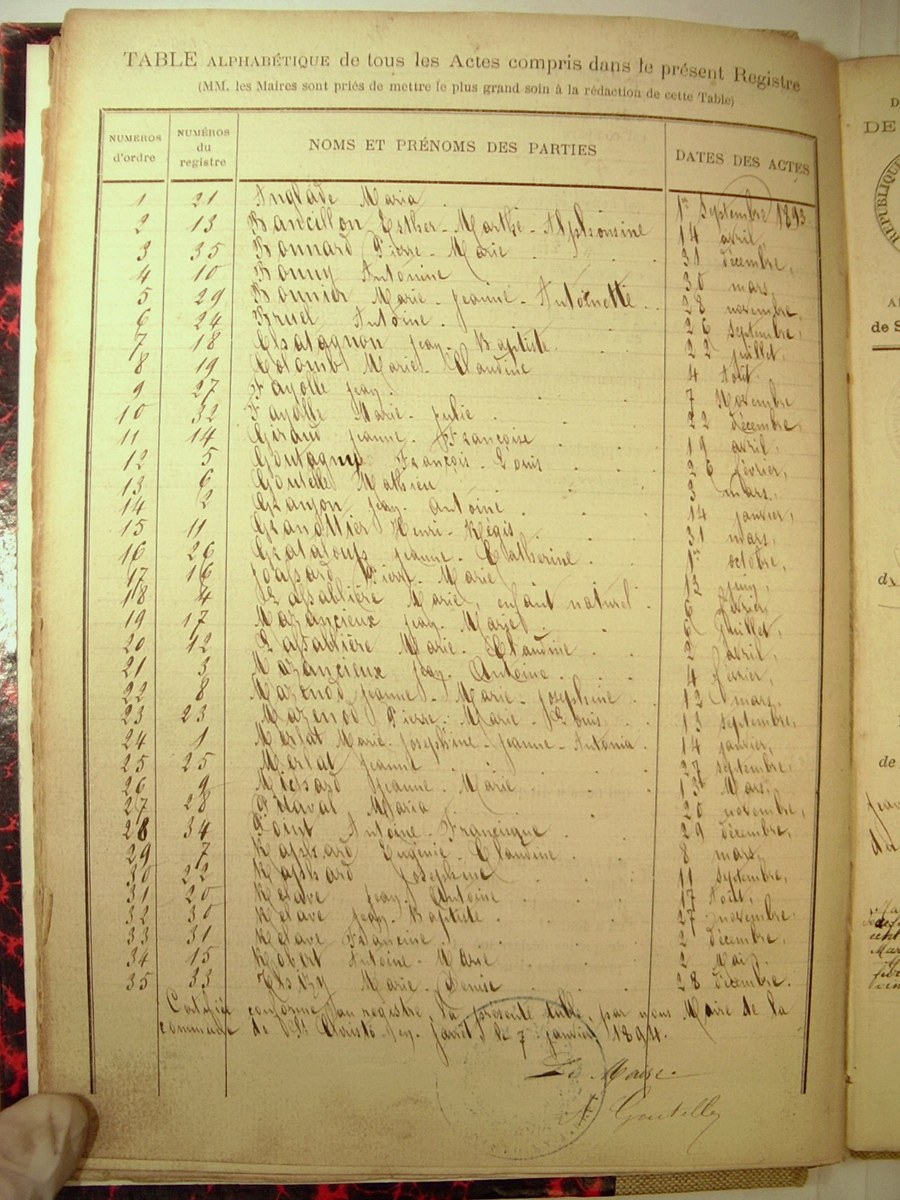 TABLE ALPHABÉTIQUE de tous les Actes compris dans le présent Registre
(MM. les Maires sont priés de mettre le plus grand soin à la rédaction de cette Table)
NUMEROS d'ordre NUMÉROS du registre NOMS ET PRÉNOMS DES PARTIES DATES DES ACTES
1 21 Anglade Maria 1er Septembre 1893
2 13 Esther-Marthe-Alphonsine 14 avril
3 35 Bonnard Pierre-Marie 31 décembre,
4 10 Bonny Antonine 30 mars,
5 29 Bonnier Marie-Jeanne-Antoinette 28 novembre,
6 24 Bruel Antoine 26 septembre,
7 18 Chatagnon Jean-Baptiste 22 juillet,
8 19 Colombet Mariel-Claudine 4 Août
9 27 Fayolle Jean 7 Novembre
10 32 Fayolle Marie-Julie 22 décembre,
11 14 Giraud Jeanne-Françoise 19 avril,
12 5 Goutagny François-Louis 26 février,
13 6 Goutelle Mathieu 3 mars,
14 2 Granjon Jean-Antoine 14 janvier,
15 11 Granottier Henri-Régis 31 mars,
16 26 Grataloup Jeanne-Catherine 1er octobre,
17 16 Pierre-Marie 13 juin,
18 4 Lassablière Mariel, enfant naturel 6 février
19 17 Mazancieux Jean-Marcel 6 juillet,
20 12 Lassablière Marie-Claudine 2 avril,
21 3 Mazancieux Jean-Antoine 4 février,
22 8 Mazenod Jeanne-Marie-Joséphine 12 mars,
23 23 Mazenod Pierre-Marie-Louis 13 septembre,
24 1 Merlat Marie-Joséphine-Jeanne-Antonia 14 janvier,
25 25 Merlat Jeanne 27 septembre,
26 9 Jeanne-Marie 13 Mars,
27 28 Maria 20 novembre,
28 34 Point Antoine-Francisque 29 décembre,
29 7 Eugénie-Claudine 8 mars,
30 22 Joséphine 11 septembre,
31 20 Relave Jean-Antoine 17 Août,
32 30 Relave Jean-Baptiste 27 novembre,
33 31 Relave Francine 2 décembre,
34 15 Robert Antoine-Marie 2 Mai,
35 33 Thizy Marie-Denise 28 Décembre.
Certifié conforme au registre, la présente table, par nous Maire de la
commune de St Christo-en-Jarret le 7 janvier 1894.
Le Maire
Goutelle